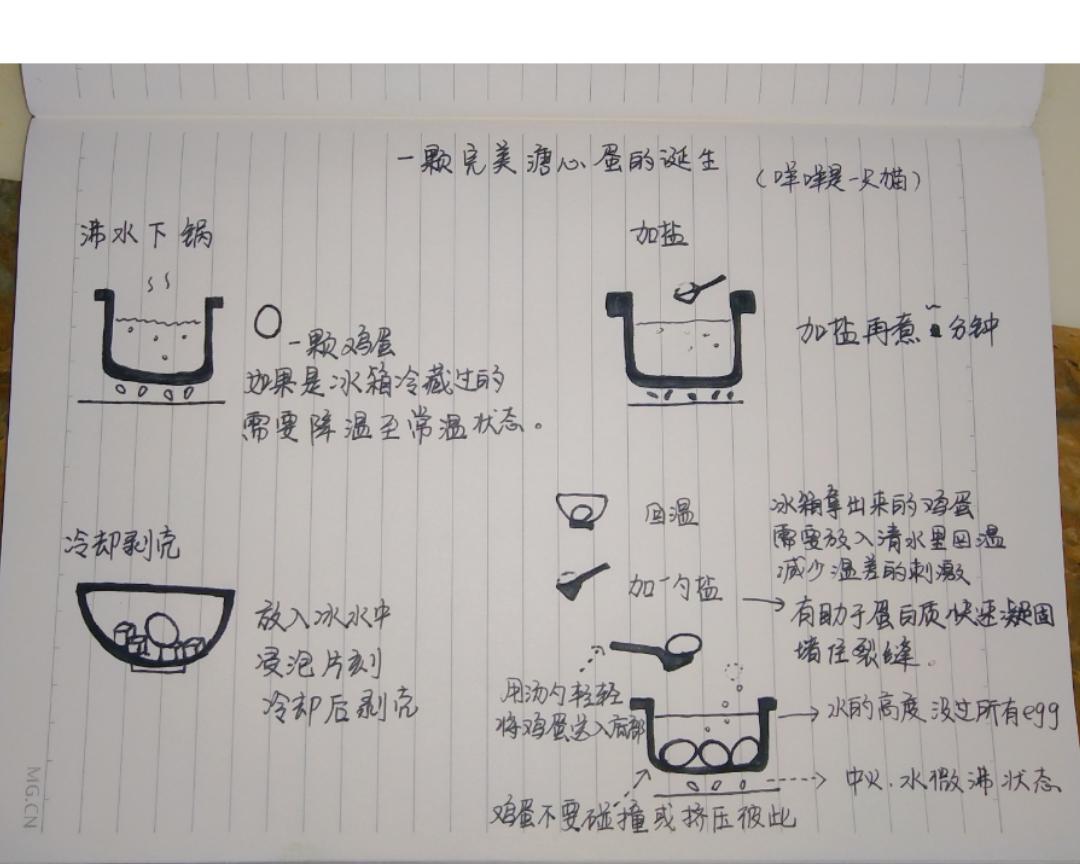 一颗完美溏心蛋的诞生
(咩咩是一只猫)
沸水下锅
一颗鸡蛋
如果是冰箱冷藏过的
需要降温至常温状态。
加盐
加盐再煮 分钟
冷却剥壳
放入冰水中
浸泡片刻
冷却后剥壳
回温
冰箱拿出来的鸡蛋
需要放入清水里回温
减少温差的刺激
加一勺盐
有助于蛋白质快速凝固
堵住裂缝。
用汤勺轻轻
将鸡蛋送入底部
水的高度没过所有egg
中火.水微沸状态
鸡蛋不要碰撞或挤压彼此
MG.CN